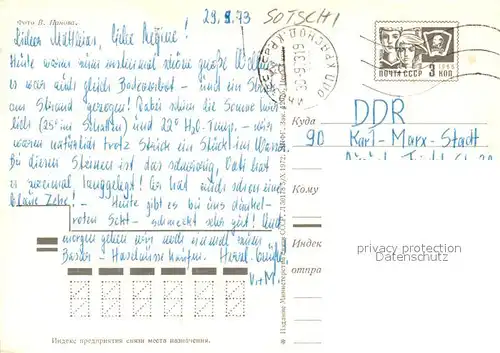 Фото В. Панова.
29.9.73
SOTSCHI
Lieber Matthias, liebe Regine!
Heute waren mir schöne große Wellen
es war auch gleich Badeverbot - und ein
am Strand gezogen! Dabei schien die Sonne
lich (25° im Schatten) und 22° H₂O-Temp. - wir
waren natürlich trotz Strick ein Stück im Wasser
Bei diesen Steinen ist das schwierig, Vati hat
es zweimal langgelegt! Er hat auch schon eine
blaue Zehe! - Heute gibt es bei uns dunkel-
roten Sekt - schmeckt sehr gut! Und
morgen gehen wir noch einmal zum
Basar - Haselnüsse kaufen. Herzl. Grüße
V. + M.
ПОЧТА СССР 3 КОП
1966
Куда
DDR
90 Karl-Marx-Stadt
Кому
Индекс
отпра
privacy protection
Индекс предприятия связи места назначения.